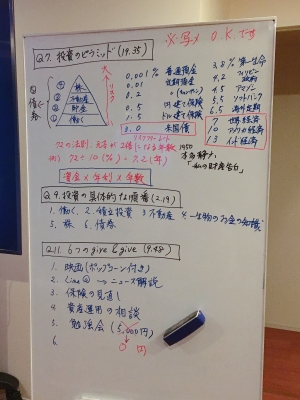 ※写メ O.Kです
Q7. 投資のピラミッド(19.35)
④ 株
③ 不動産
② 貯金
① 働く
大 リスク 小
0.001% 普通預金
0.01 定期預金
0.2 〃
0.5 円建て保険
1.5 ドル建て保険
3.0 米国債
3.8% 第一生命
4.2
4.5 アマゾン
5.5 ソフトバンク
6.5
7 世界経済
10 アメリカ経済
13 インド経済
72の法則. 元本が2倍になる年数
例) 72÷10(%)=7.2(年)
1950
本多静六
「私の財産告白」
資金×年利×年数
Q.9.投資の具体的な順番(2.19)
1. 働く. 2. 積立投資 3. 不動産 4. 一生物のお金の知識
5. 株 6. 債券
Q.11. 6つのgive&give(9.48)
1. 映画(ポップコーン付き)
2. Line@→ニュース解説
3. 保険の見直し
4. 資産運用の相談
5. 勉強会(5,000円)
6.
0円